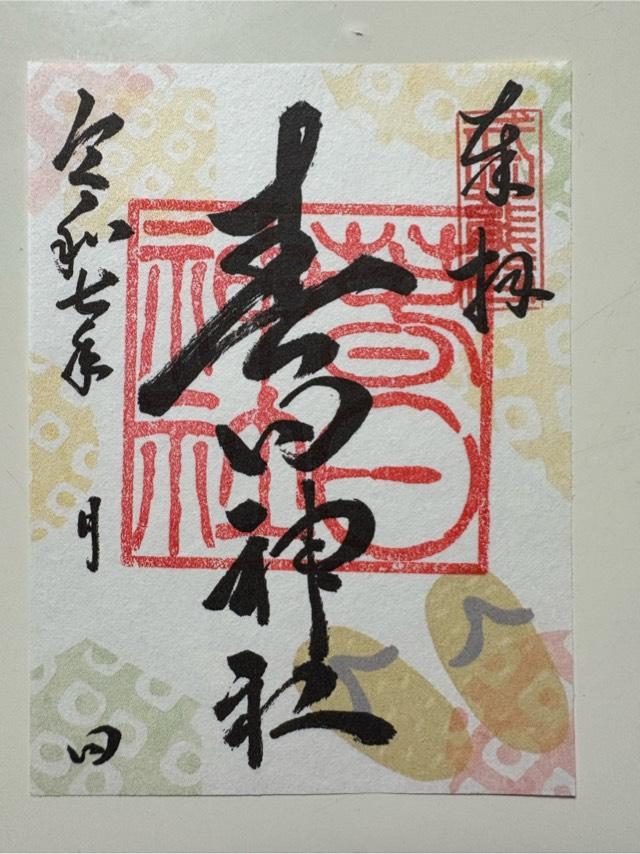 奉拝
春日神社
令和七年
月
日